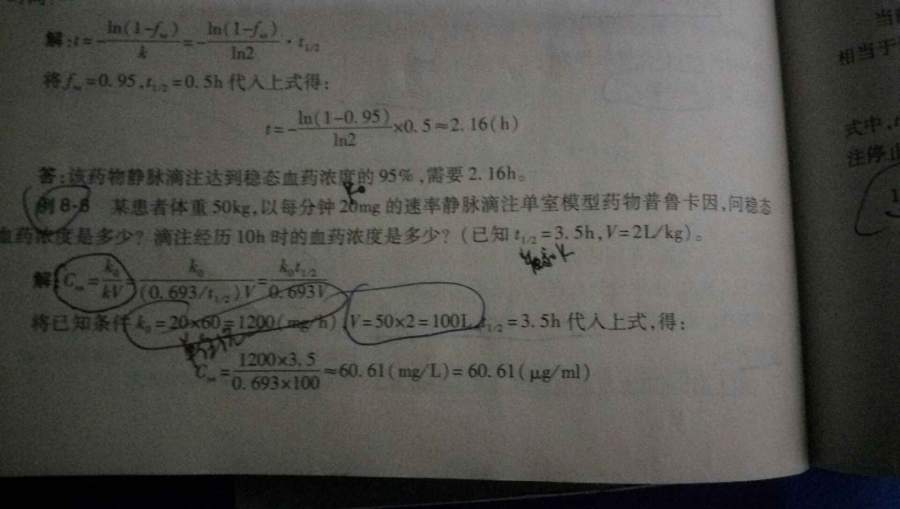 解:t=-ln(1-fss)/k=-ln(1-fss)/ln2·t1/2
将fss=0.95,t1/2=0.5h代入上式得:
t=-ln(1-0.95)/ln2×0.5≈2.16(h)
答:该药物静脉滴注达到稳态血药浓度的95%,需要2.16h。
k0
例8-8 某患者体重50kg,以每分钟20mg的速率静脉滴注单室模型药物普鲁卡因,问稳态
血药浓度是多少?滴注经历10h时的血药浓度是多少?(已知t1/2=3.5h,V=2L/kg)。
解:Css=k0/kV=k0/(0.693/t1/2)V=k0t1/2/0.693V
将已知条件k0=20×60=1200(mg/h),V=50×2=100L,t1/2=3.5h代入上式,得:
Css=1200×3.5/0.693×100≈60.61(mg/L)=60.61(μg/ml)
当
相当于
式中,
注停止